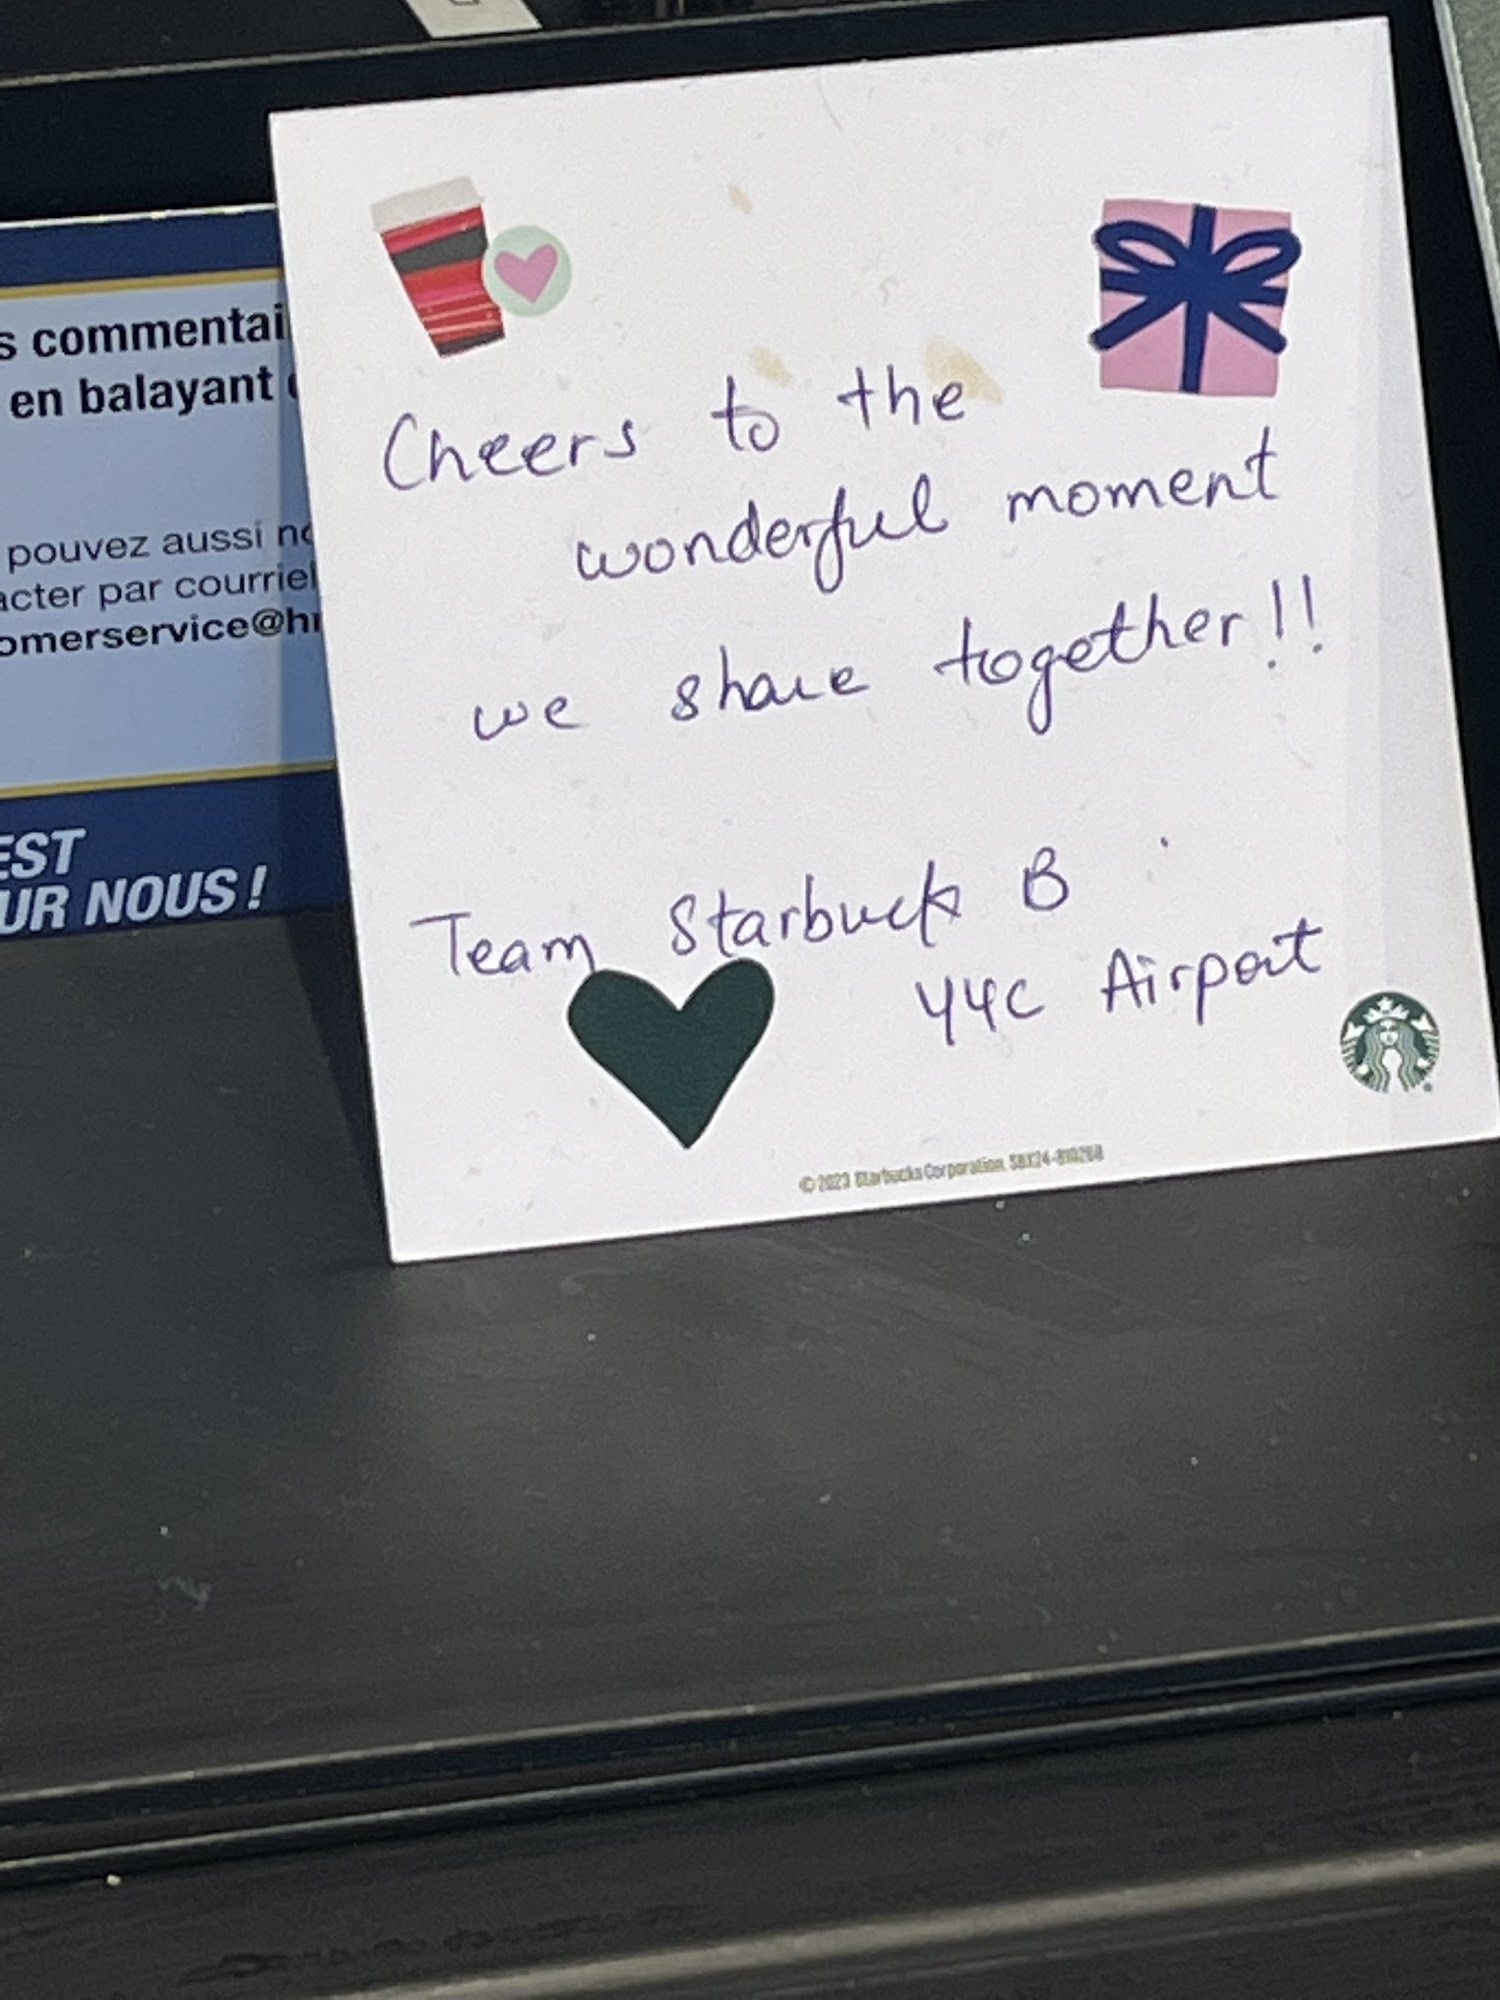 Cheers to the
wonderful moment
we share together!!
Team Starbuck B
YYC Airport
© 2023 Starbucks Corporation. SBX24-
s commentai
en balayant
pouvez aussi no
acter par courriel
omerservice@h
EST
UR NOUS!